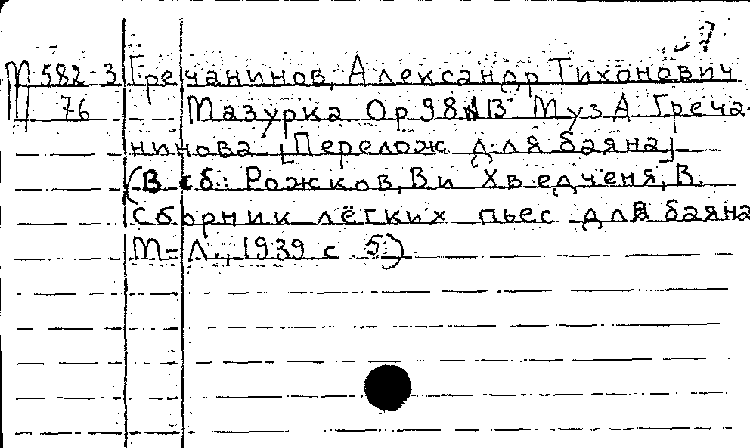 М 582-3 Гречанинов, Александр Тихонович
76 Мазурка Op 98 №13 Муз А. Греча-
нинова [Перелож для баяна]
(В сб: Рожков, В и Хведченя, В.
Сборник лёгких пьес для баяна
М-Л., 1939 с 5)